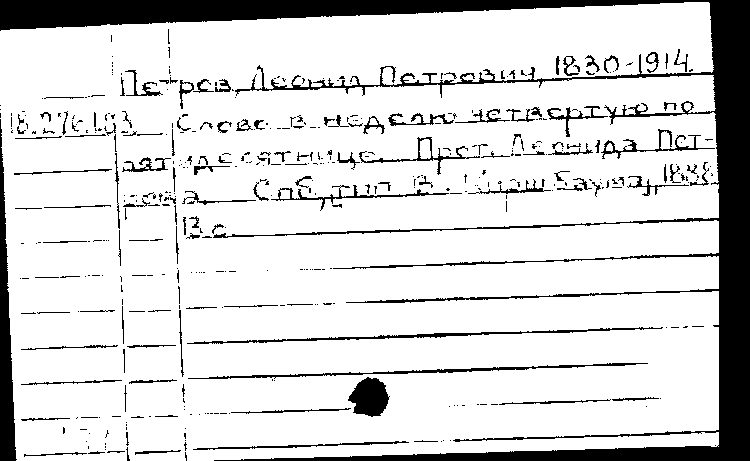 Петров, Леонид Петрович, 1830-1914
18.276.1.93 Слово в неделю четвертую по
пятидесятнице. Прот. Леонида Пет-
рова. Спб, тип. В. Киршбаума, 1888
13 с.